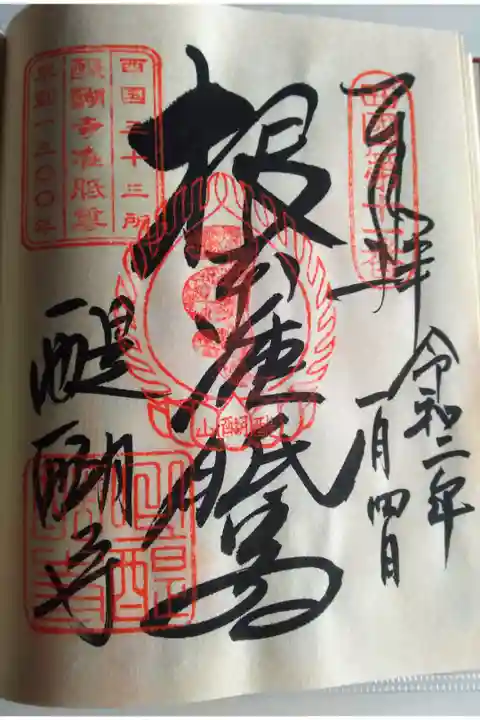 奉拝
西国第十一番
令和二年
一月四日
根本准胝尊
醍醐山
醍醐寺
西国三十三所
醍醐寺准胝堂
草創一三〇〇年